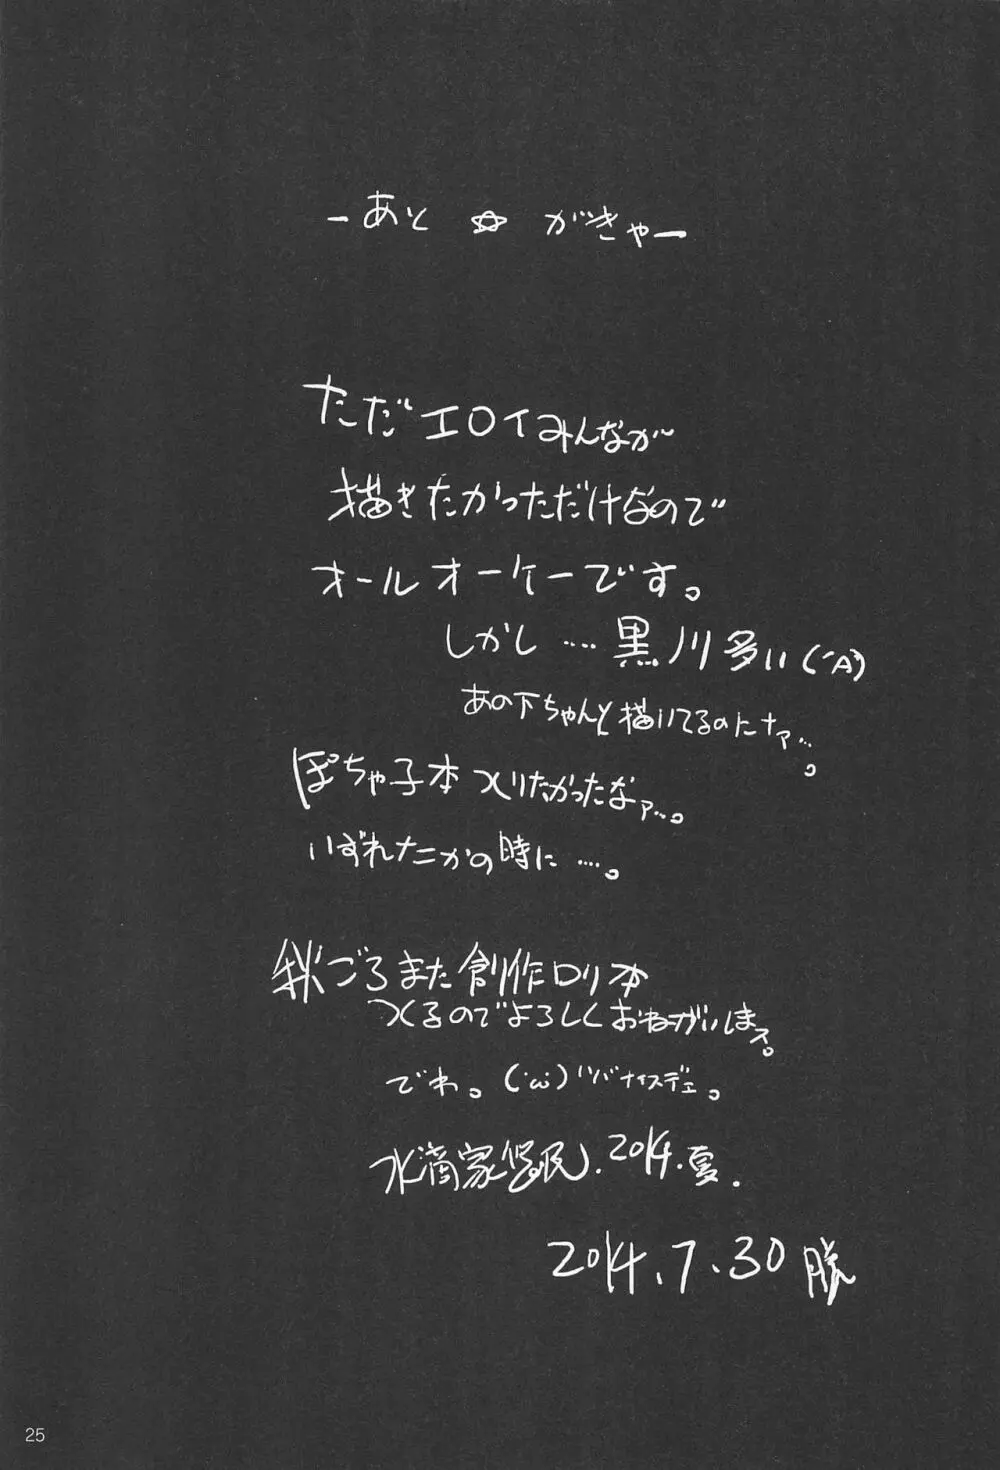 ーあと☆がきゃー
ただエロイみんなが
描きたかっただけなので
オールオーケーです。
しかし‥‥黒川多い(´A`)
あの下ちゃんと描いてるのにナァ…。
ぽちゃ子本つくりたかったなァ…。
いずれなにかの時に‥‥。
秋ごろまた創作ロリ本
つくるのでよろしくおねがいします。
でわ。(´ω`)ハバナイスデェ。
水滴家 2014.夏.
2014.7.30
25